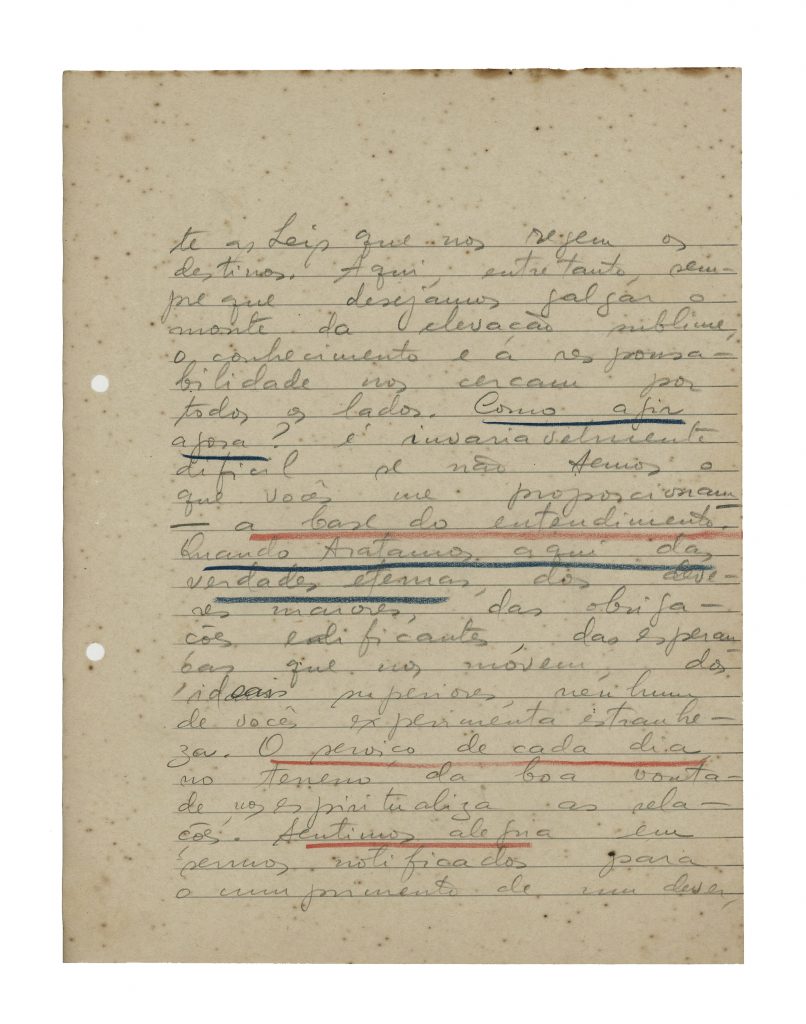 te as Leis que nos regem os
destinos. Aqui, entretanto, sem-
pre que desejamos galgár o
monte da elevação sublime,
o conhecimento e a responsa-
bilidade nos cercam por
todos os lados. Como agir
agora? é invariavelmente
dificil se não temos o
que vocês me proporcionam
— a base do entendimento.
Quando tratamos aqui das
verdades eternas, dos deve-
res maiores, das obriga-
ções edificantes, das esperan-
ças que nos móvem, dos
ideais superiores, nenhum
de vocês experimenta estranhe-
za. O serviço de cada dia
no terreno da boa vonta-
de, nos espiritualiza as rela-
ções. Sentimos alegria em
sermos notificados para
o cumprimento de um dever,